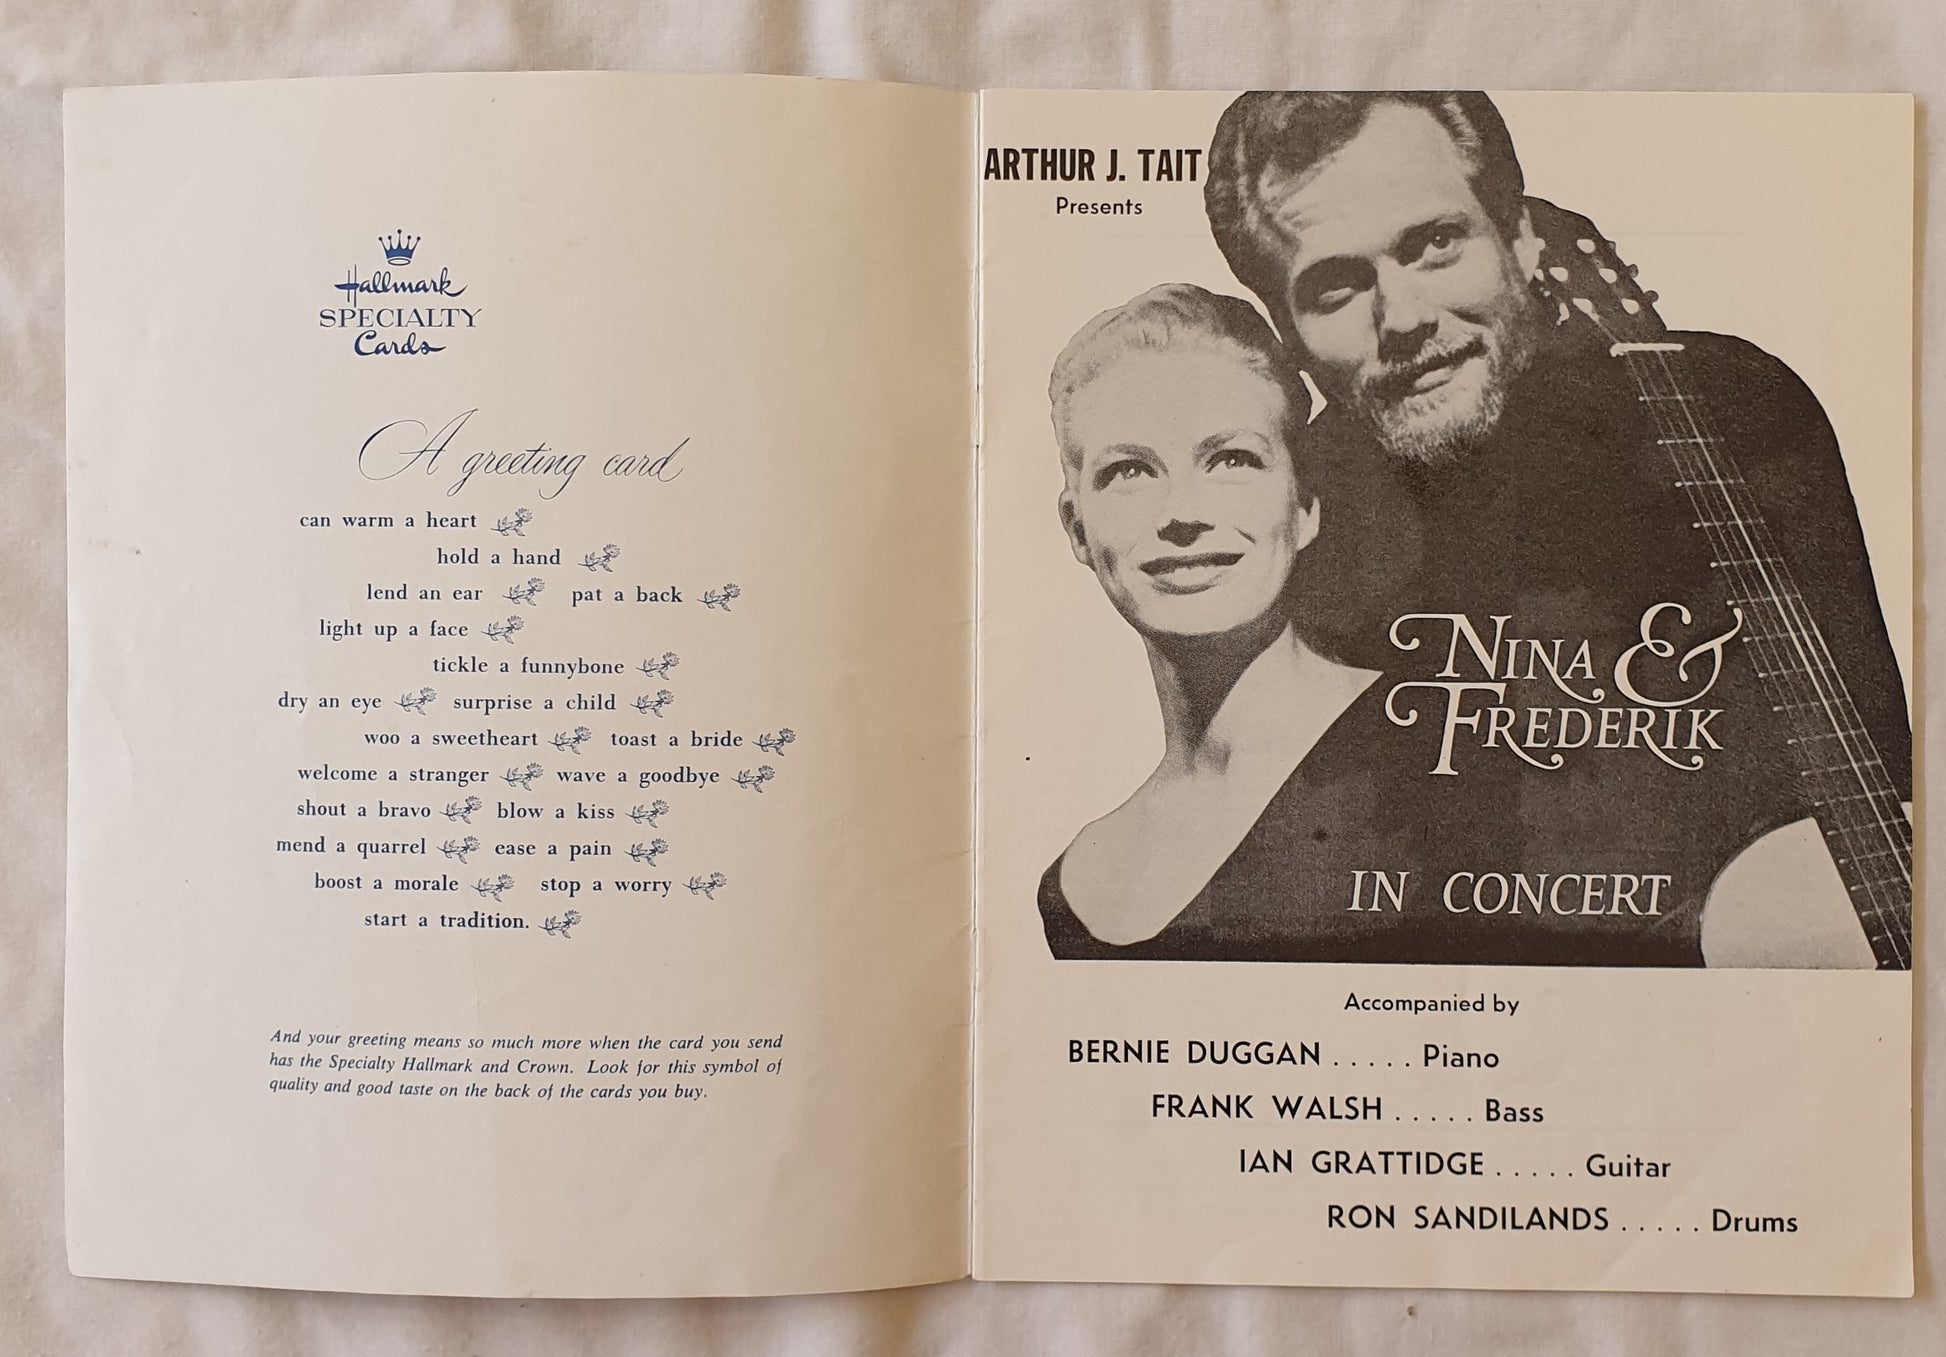 Hallmark
SPECIALTY
Cards
A greeting card
can warm a heart
hold a hand
lend an ear pat a back
light up a face
tickle a funnybone
dry an eye surprise a child
woo a sweetheart toast a bride
welcome a stranger wave a goodbye
shout a bravo blow a kiss
mend a quarrel ease a pain
boost a morale stop a worry
start a tradition.
And your greeting means so much more when the card you send
has the Specialty Hallmark and Crown. Look for this symbol of
quality and good taste on the back of the cards you buy.
ARTHUR J. TAIT
Presents
NINA &
FREDERIK
IN CONCERT
Accompanied by
BERNIE DUGGAN . . . . . Piano
FRANK WALSH . . . . . Bass
IAN GRATTIDGE . . . . . Guitar
RON SANDILANDS . . . . . Drums